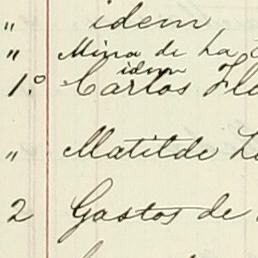 " idem
" Mina de La
idem
1.º Carlos
" Matilde
2 Gastos de